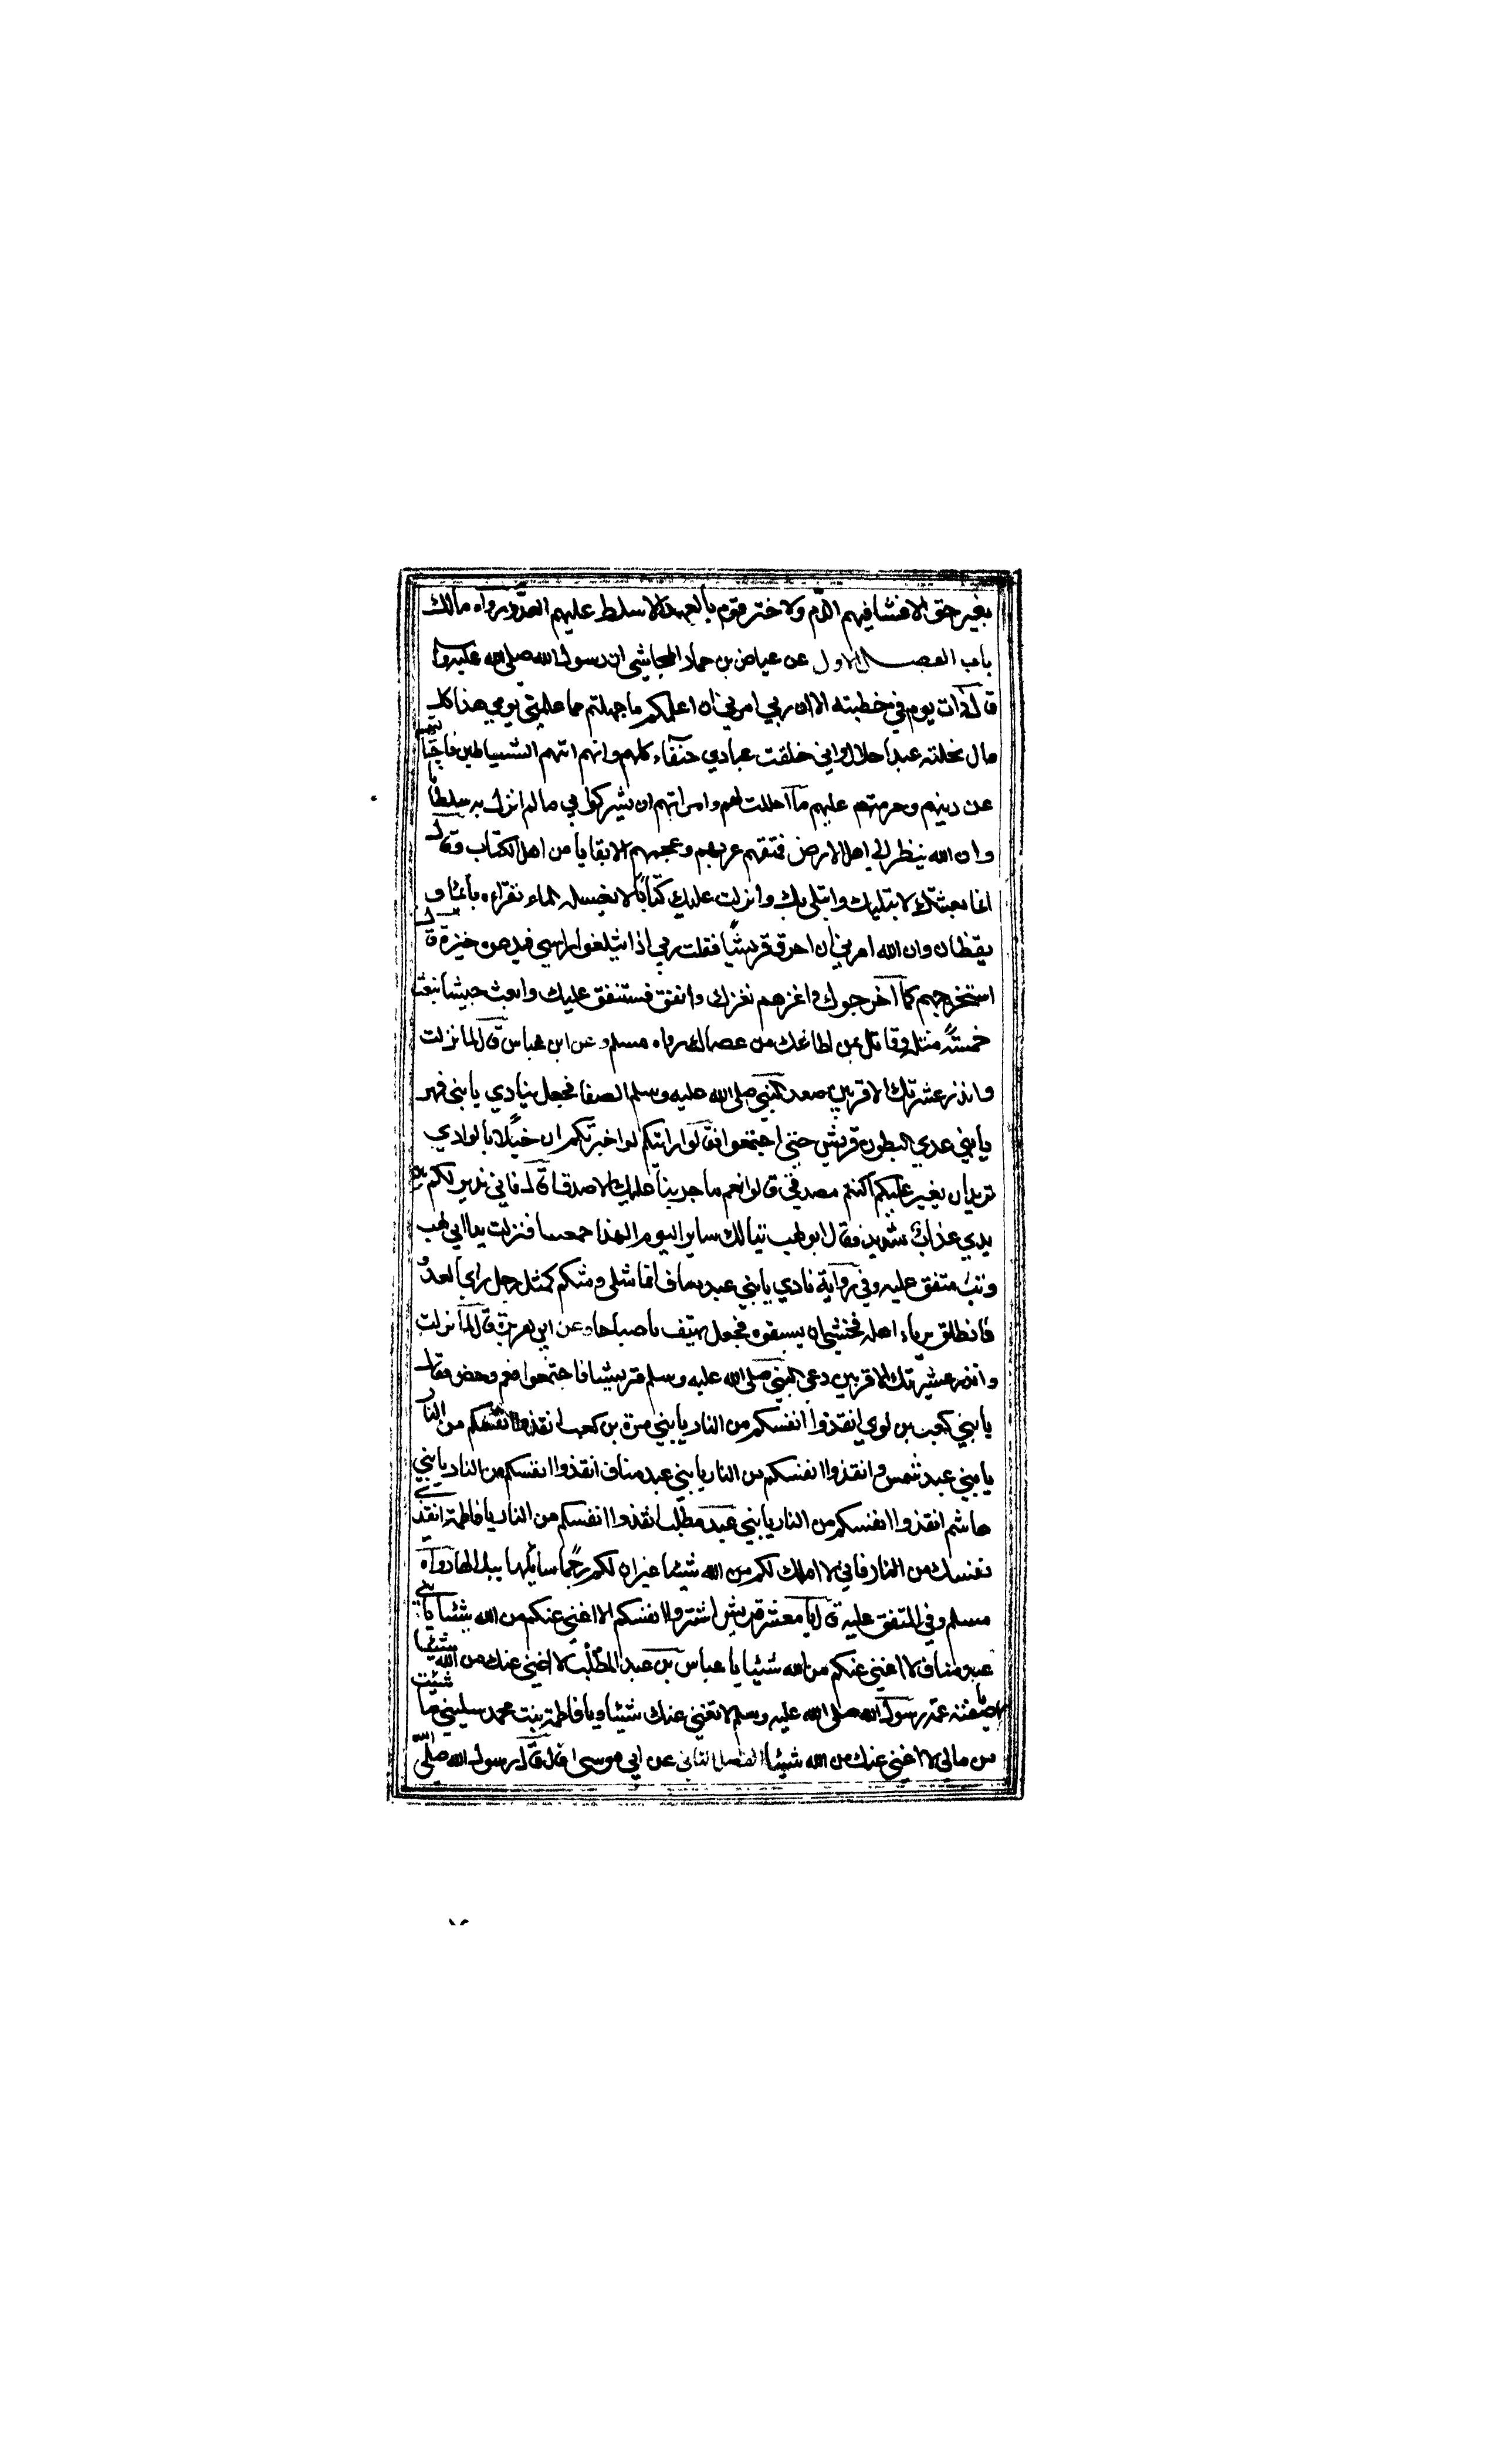 بغير حق الا فشا فيهم الدّم ولا ختر قوم بالعهد الا سلط عليهم العدّو رواه مالك
باب الفصل الاول عن عياض بن حماد المجاشي ان رسول الله صلى الله عليه وا
قال ذات يوم في خطبته الا ان ربي امرني ان اعلمكم ما جهلتم مما علمني يومي هذا كل
مال نحلته عبدا حلال واني خلقت عبادي حنفاء كلهم وانهم اتتهم الشياطين فاجتا لتهم
عن دينهم وحرمتهم عليهم ما احللت لهم وامراتهم ان يشركوا بي ما لم انزل به سلطانا
وان الله ينظر الي اهل الارض فمقتهم عربهم وعجمهم الا بقايا من اهل الكتاب وقال
انما بعثتك لابتليك وابتلي بك وانزلت عليك كتابًا لا يغسله الماء تقراءه نائما و
يقظان وان الله امرني ان احرق قريشًا فقلت ربي اذا يثلغوا راسي فيدعوه خبزة قال
استخرجهم كما اخرجوك واغزهم نغزك وانفق فستنفق عليك وابعث جيشا نبعث
خمسة مثله وقاتل بمن اطاعك من عصاك رواه مسلم وعن ابن عباس قال لما نزلت
وانذر عشيرتك الاقربين صعد النبي صلى الله عليه وسلم الصفا فجعل ينادي يا بني فهر
يا بني عدي لبطون قريش حتى اجتمعوا فقال ارايتكم لو اخبرتكم ان خيلا بالوادي
تريد ان يغير عليكم اكنتم مصدقي قالوا نعم ما جربنا عليك الا صدقا قال فاني نذير لكم بين
يدي عذاب شديد فقال ابو لهب تبا لك ساير اليوم الهذا جمعتنا فنزلت يدا ابي لهب
وتب متفق عليه وفي رواية نادي يا بني عبد مناف انما مثلي ومثلكم كمثل رجل راي العدو
فانطلق يرباء اهله فخشي ان يسبقوه فجعل يهتف يا صباحاه وعن ابي هريرة قال لما نزلت
وانذر عشيرتك الاقربين دعي النبي صلى الله عليه وسلم قريشا فاجتمعوا فعم وخص فقال
يا بني كعب بن لوي انقذوا انفسكم من النار يا بني مرة بن كعب انقذوا انفسكم من النار
يا بني عبد شمس وانقذوا انفسكم من النار يا بني عبد مناف انقذوا انفسكم من النار يا بني
هاشم انقذوا انفسكم من النار يا بني عبد مطلب انقذوا انفسكم من النار يا فاطمة انقذي
نفسك من النار فاني لا املك لكم من الله شيئا غير ان لكم رحمًا سابلها ببلالها رواه
مسلم وفي المتفق عليه قال يا معشر قريش اشتروا انفسكم لا اغني عنكم من الله شيئا يا بني
عبد مناف لا اغني عنكم من الله شيئا يا عباس بن عبد المطلب لا اغني عنك من الله شيئا
يا صفية عمة رسول الله صلى الله عليه وسلم لا تغني عنك شيئا ويا فاطمة بنت محمد سليني ما شيئت
من مالي لا اغني عنك من الله شيئا الفصل الثاني عن ابي موسى قال قال رسول الله صلى الله